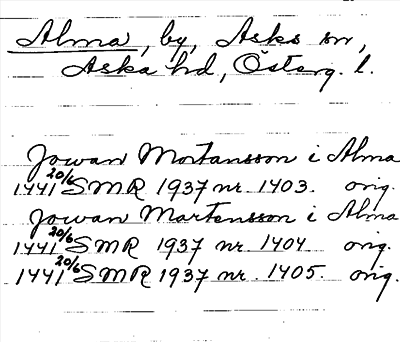 Alma, by, Asks sn,
Aska hd, Österg. l.
Jowan Mortansson i Alma
1441 20/6 SMR 1937 nr. 1403. orig.
Jowan Martensson i Alma
1441 20/6 SMR 1937 nr. 1404 orig.
1441 20/6 SMR 1937 nr. 1405. orig.